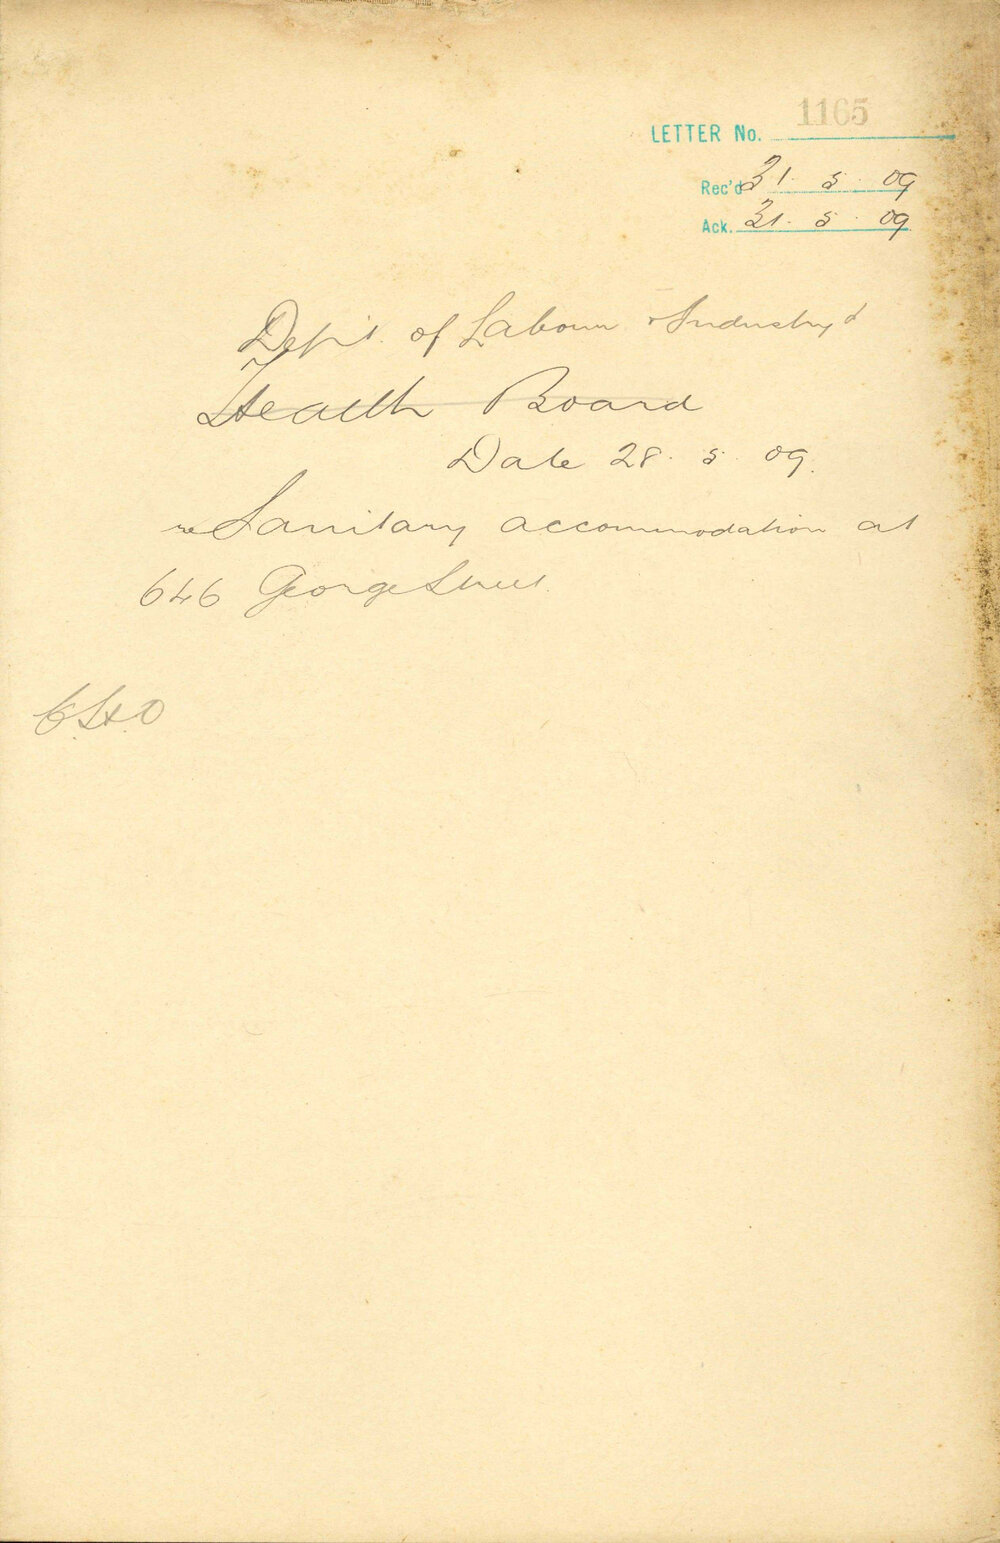 LETTER No. 1165
Rec'd 31. 5. 09
Ack. 31. 5. 09
Dept. of Labour & Industry
Health Board
Date 28. 5. 09.
re Sanitary accommodation at
646 George Street
CHO